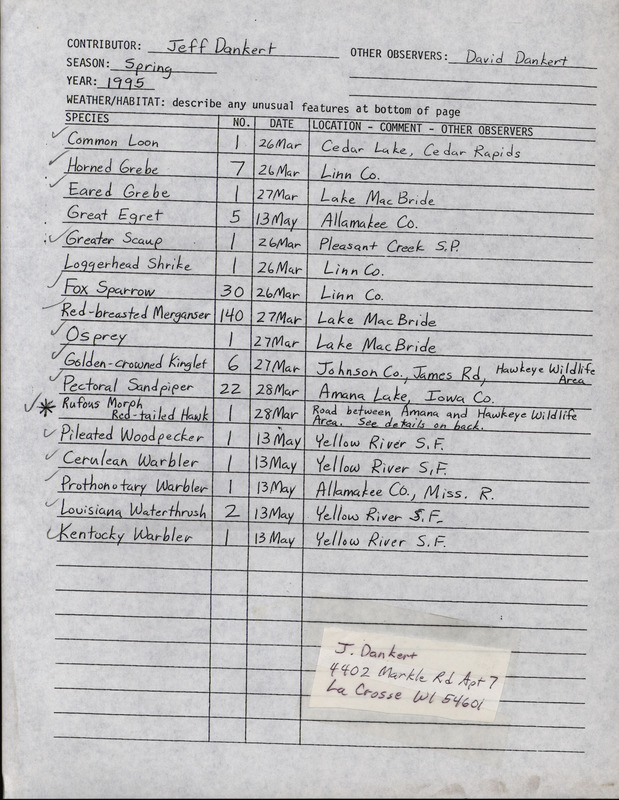 CONTRIBUTOR: Jeff Dankert OTHER OBSERVERS: David Dankert
SEASON: Spring
YEAR: 1995
WEATHER/HABITAT: describe any unusual features at bottom of page
SPECIES NO. DATE LOCATION - COMMENT - OTHER OBSERVERS
✓ Common Loon 1 26Mar Cedar Lake, Cedar Rapids
✓ Horned Grebe 7 26Mar Linn Co.
✓ Eared Grebe 1 27Mar Lake MacBride
Great Egret 5 13May Allamakee Co.
✓ Greater Scaup 1 26Mar Pleasant Creek S.P.
Loggerhead Shrike 1 26Mar Linn Co.
✓ Fox Sparrow 30 26Mar Linn Co.
✓ Red-breasted Merganser 140 27Mar Lake MacBride
✓ Osprey 1 27Mar Lake MacBride
✓ Golden-crowned Kinglet 6 27Mar Johnson Co., James Rd, Hawkeye Wildlife Area
✓ Pectoral Sandpiper 22 28Mar Amana Lake, Iowa Co.
✓ * Rufous Morph Red-tailed Hawk 1 28Mar Road between Amana and Hawkeye Wildlife Area. See details on back.
✓ Pileated Woodpecker 1 13May Yellow River S.F.
✓ Cerulean Warbler 1 13May Yellow River S.F.
✓ Prothonotary Warbler 1 13May Allamakee Co., Miss. R.
✓ Louisiana Waterthrush 2 13May Yellow River S.F.
✓ Kentucky Warbler 1 13May Yellow River S.F.
J. Dankert
4402 Markle Rd Apt 7
La Crosse WI 54601